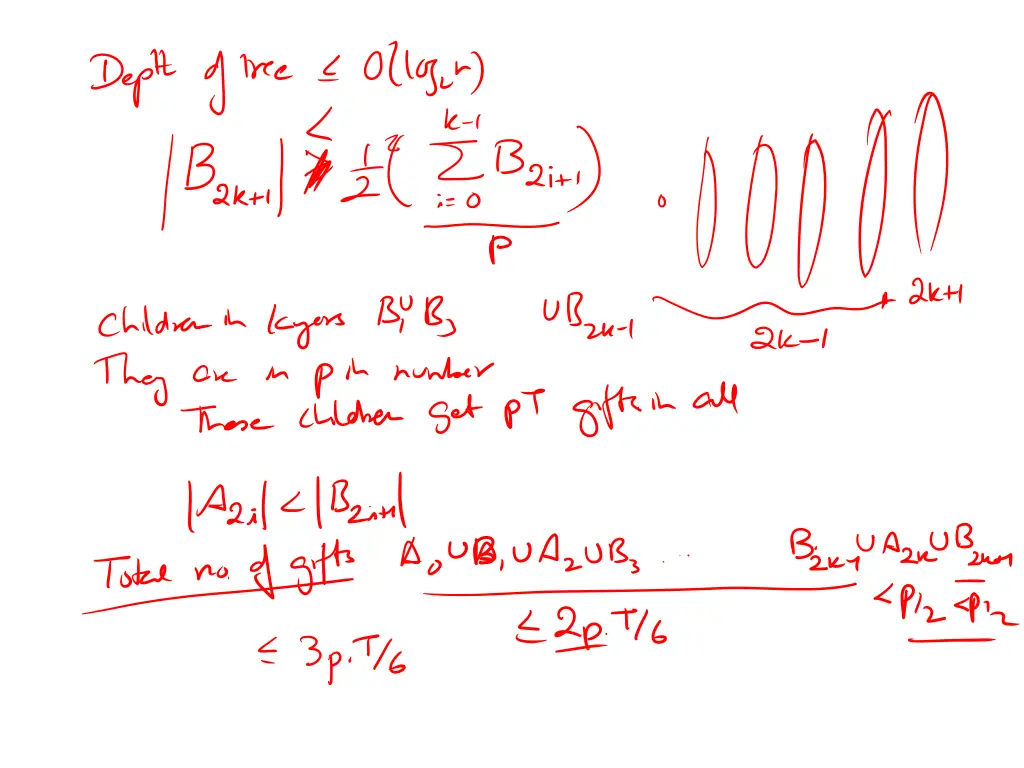 Depth of tree ≤ O(log₂ n)
|B_{2k+1}| < 1/2 ( \sum_{i=0}^{k-1} B_{2i+1} )
p
2k-1
2k+1
Children in layers B₁ ∪ B₃ ∪ B_{2k-1}
They are in p in number
These children get pT gifts in all
|A_{2i}| < |B_{2i+1}|
Total no. of gifts A₀ ∪ B₁ ∪ A₂ ∪ B₃ ... B_{2k-1} ∪ A_{2k} ∪ B_{2k+1}
≤ 3p.T/6 ≤ 2p.T/6 < p/2 < p/2